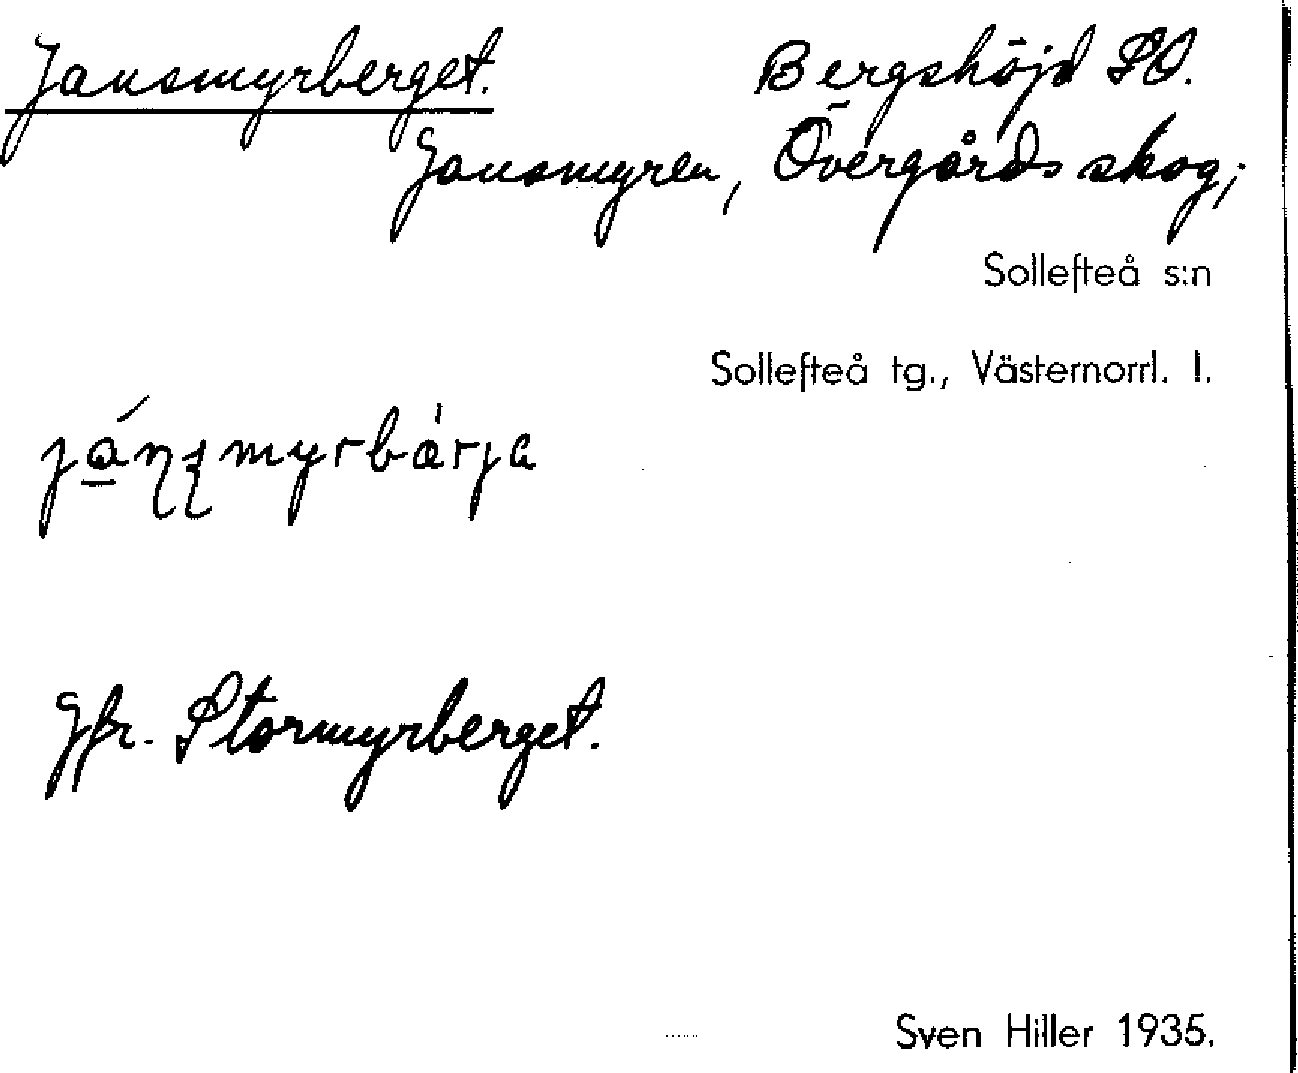 Jansmyrberget. Bergshöjd SO.
Jansmyren, Övergårds skog;
Sollefteå s:n
Sollefteå tg., Västernorrl. l.
Jfr. Stormyrberget.
Sven Hiller 1935.